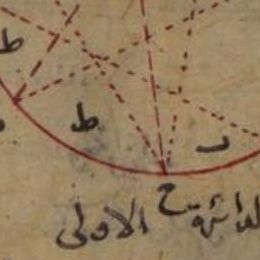 ط
ط
ح
الدائرة الاولى